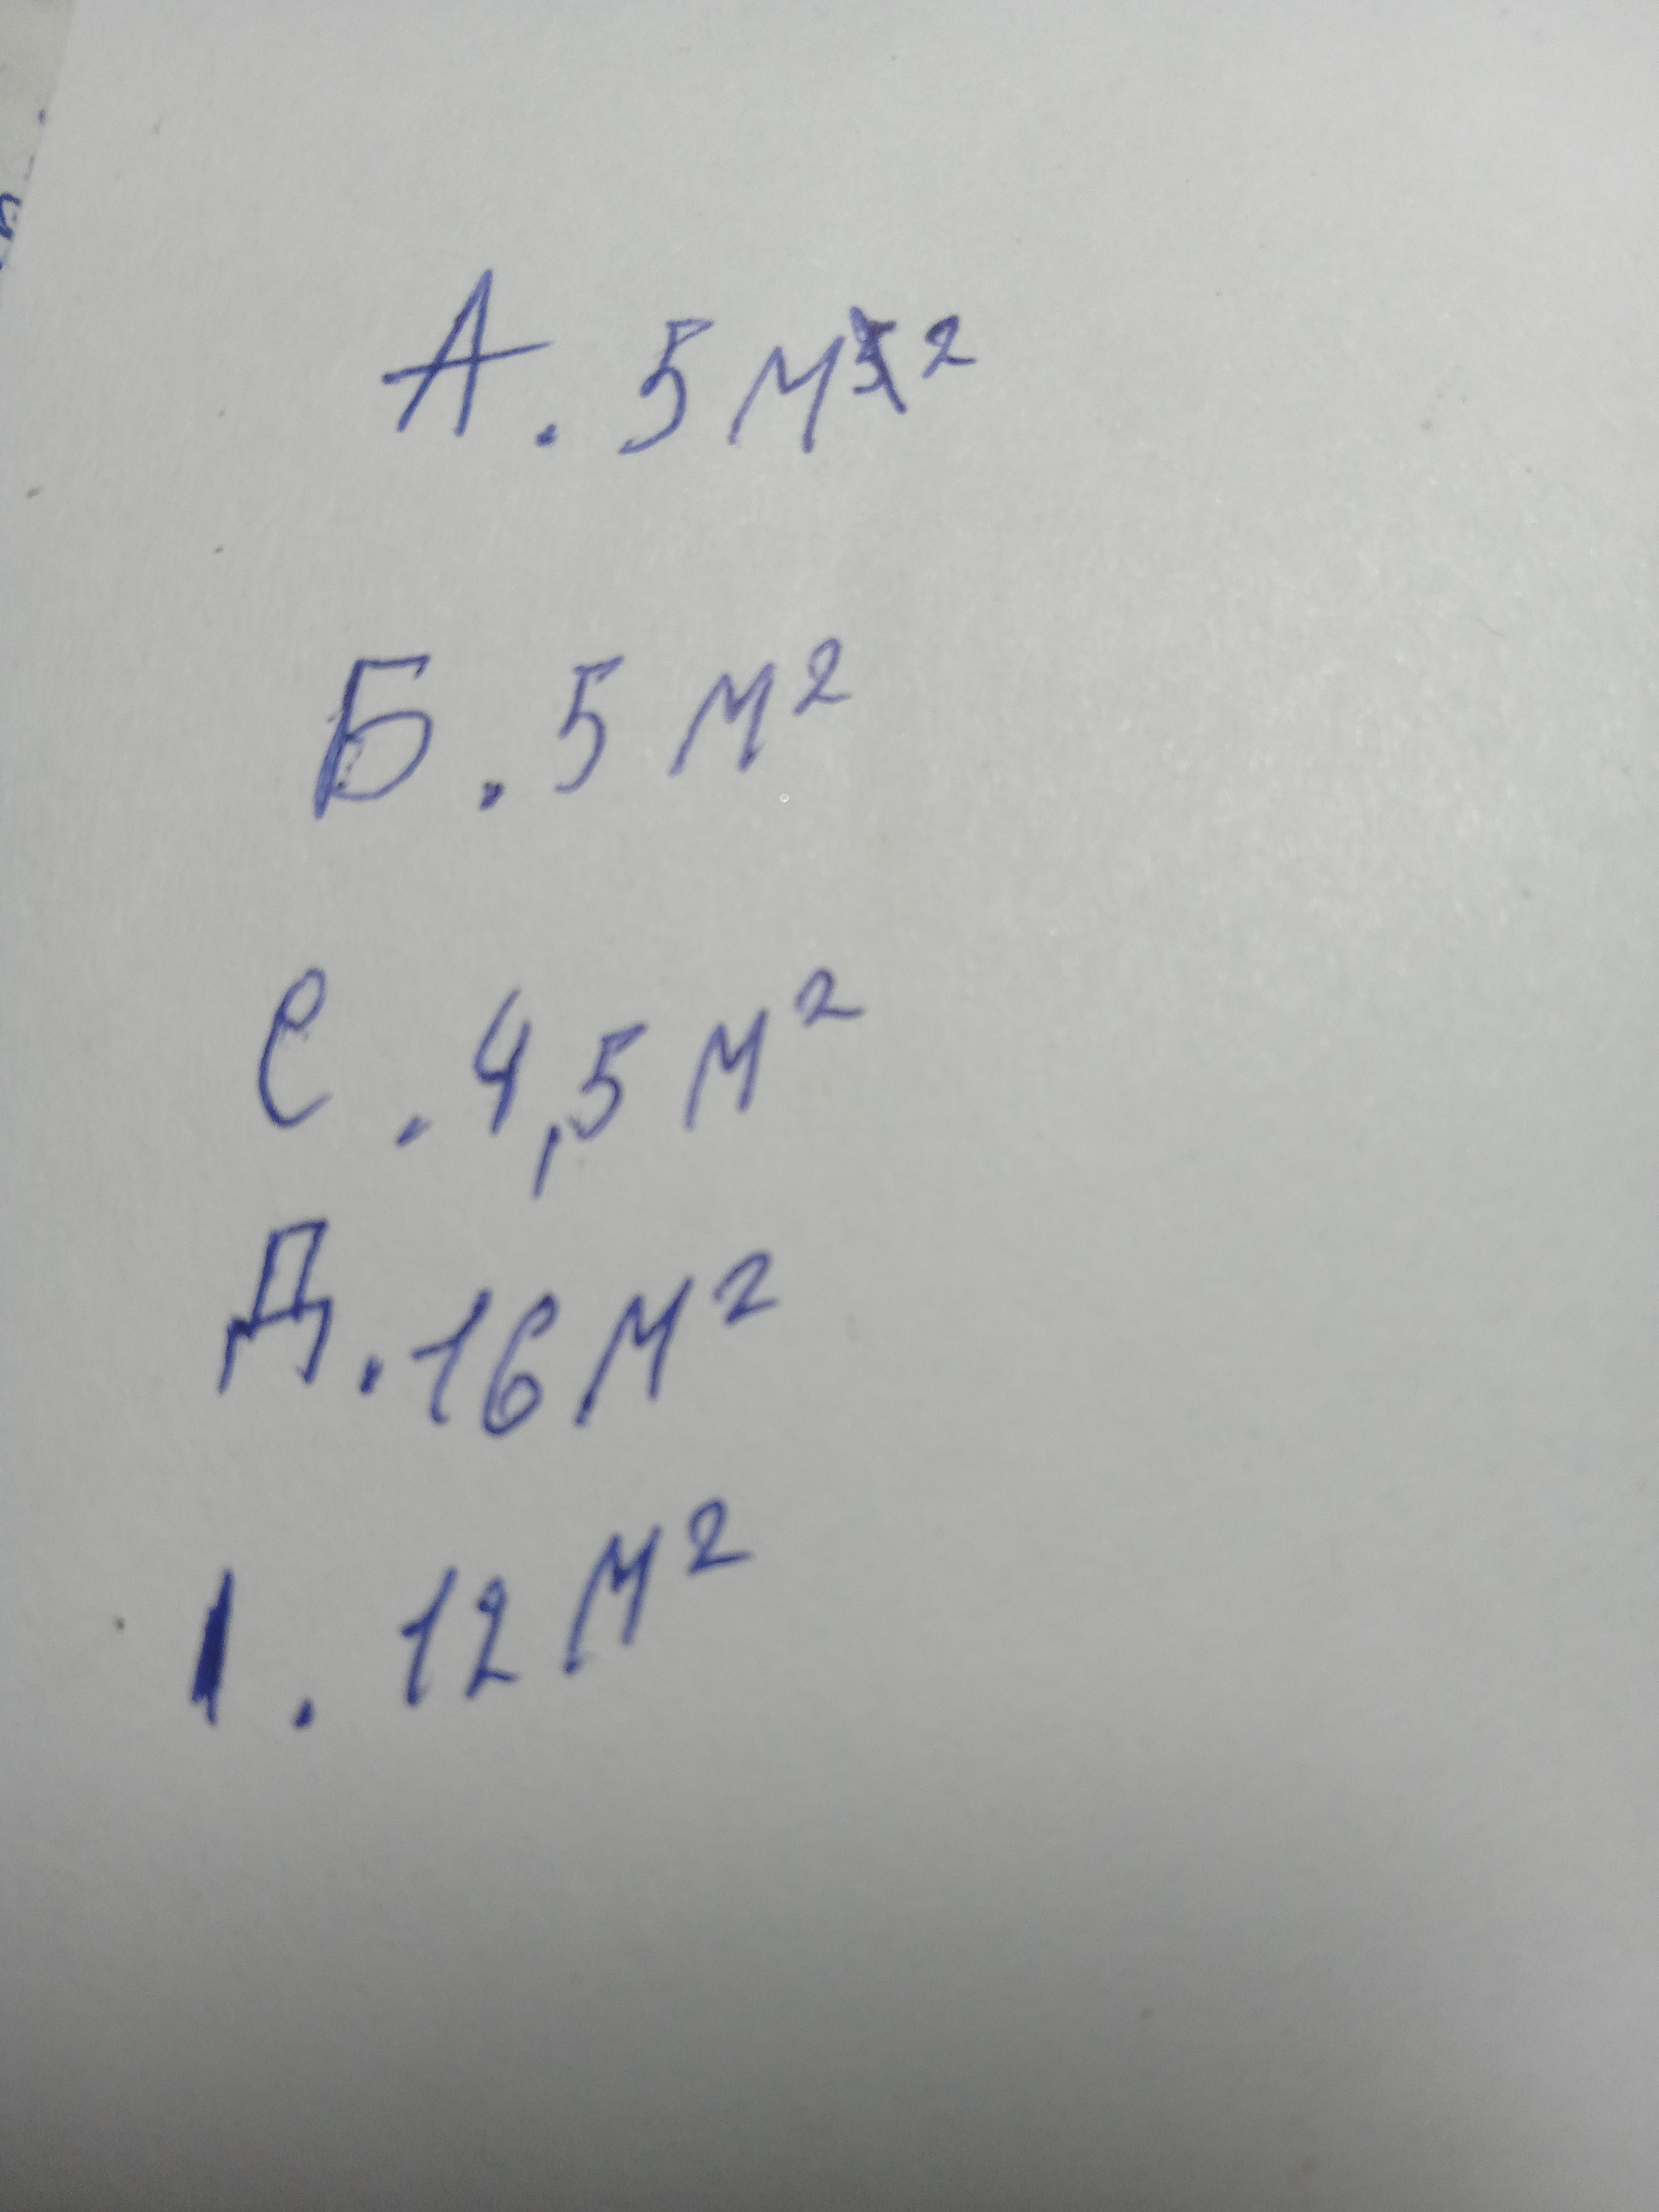 А. 5 м²
Б. 5 м²
С. 4,5 м²
Д. 16 м²
1. 12 м²